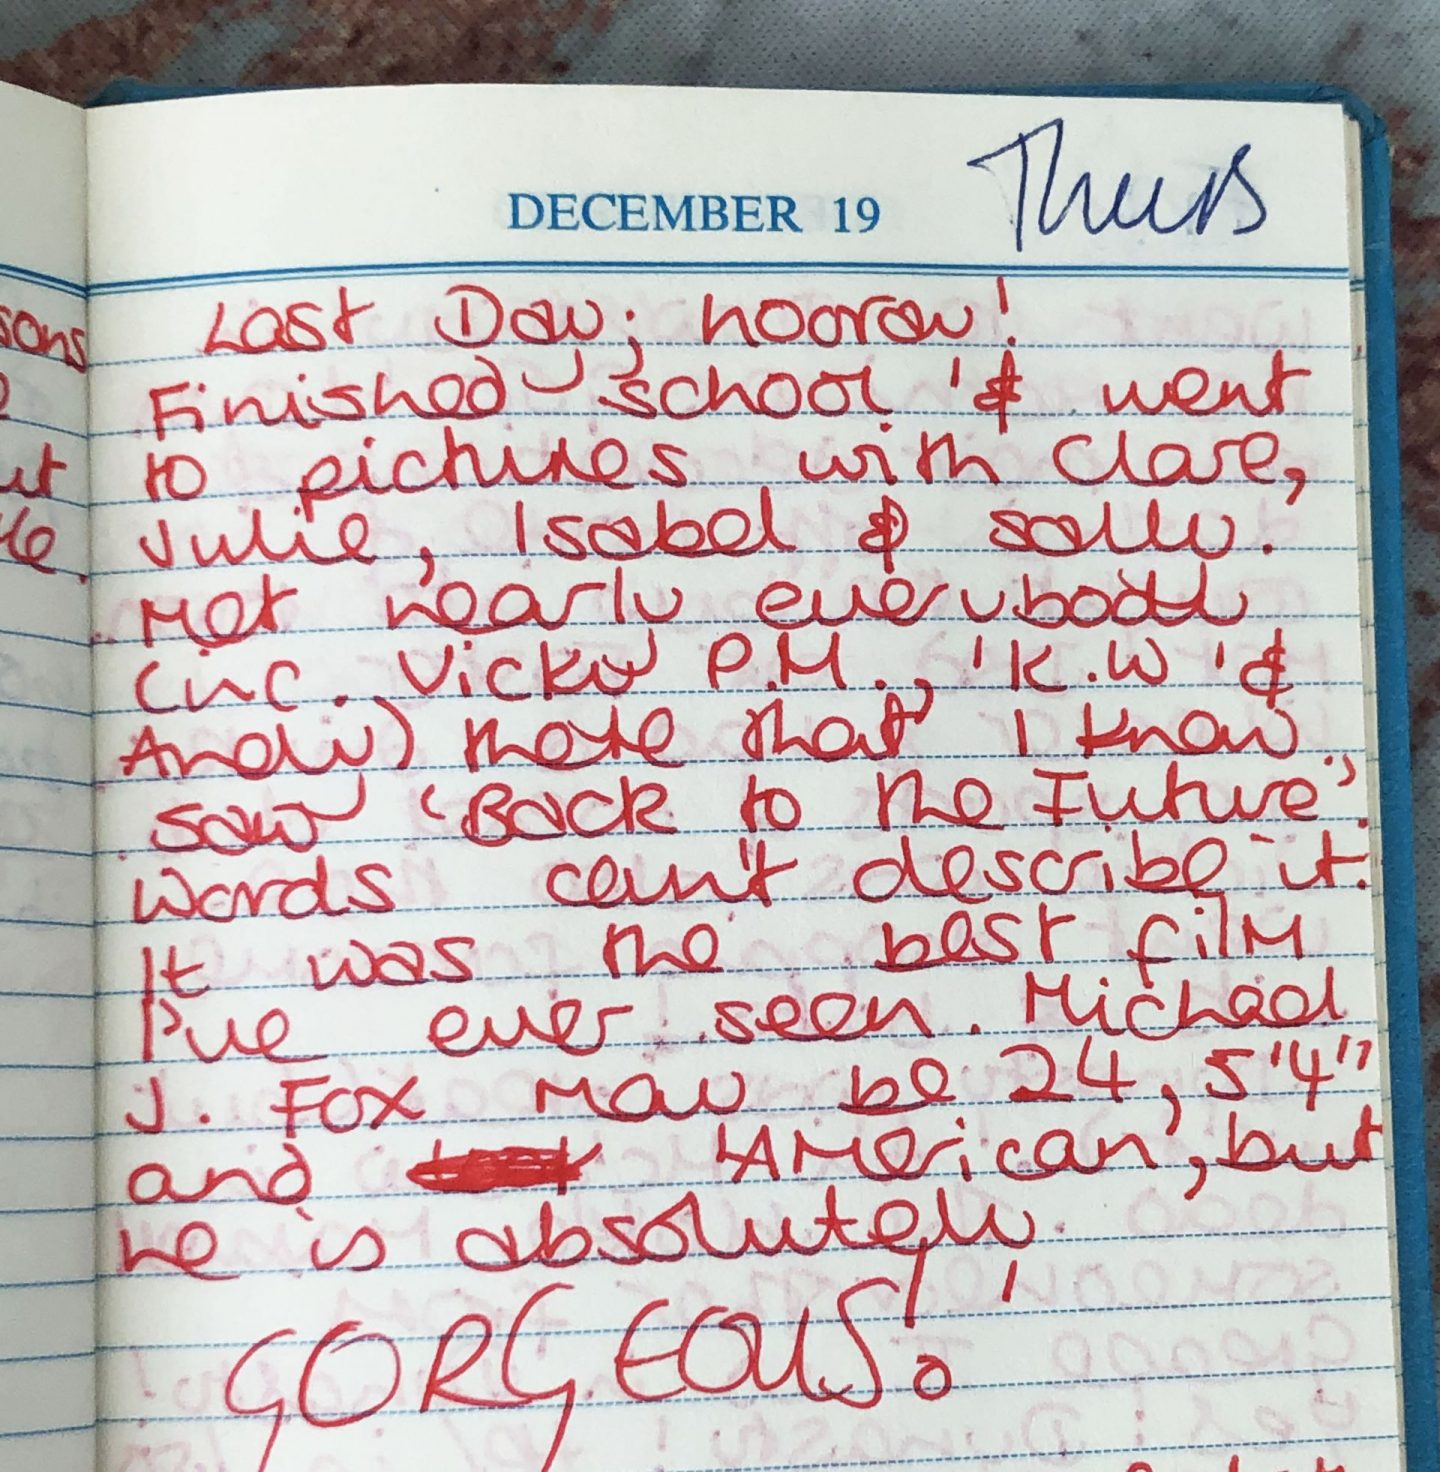 sons
ut
DECEMBER 19 Thurs
Last Day; hooray!
Finished school & went
to pictures with Clare,
Julie, Isabel & Sally.
Met nearly everybody
(inc. Vicky P.M., K.W &
Andy) there that I know,
saw 'Back to the Future'.
Words can't describe it.
It was the best film
I've ever seen. Michael
J. Fox may be 24, 5'4"
and 'American', but
he is absolutely
GORGEOUS!!